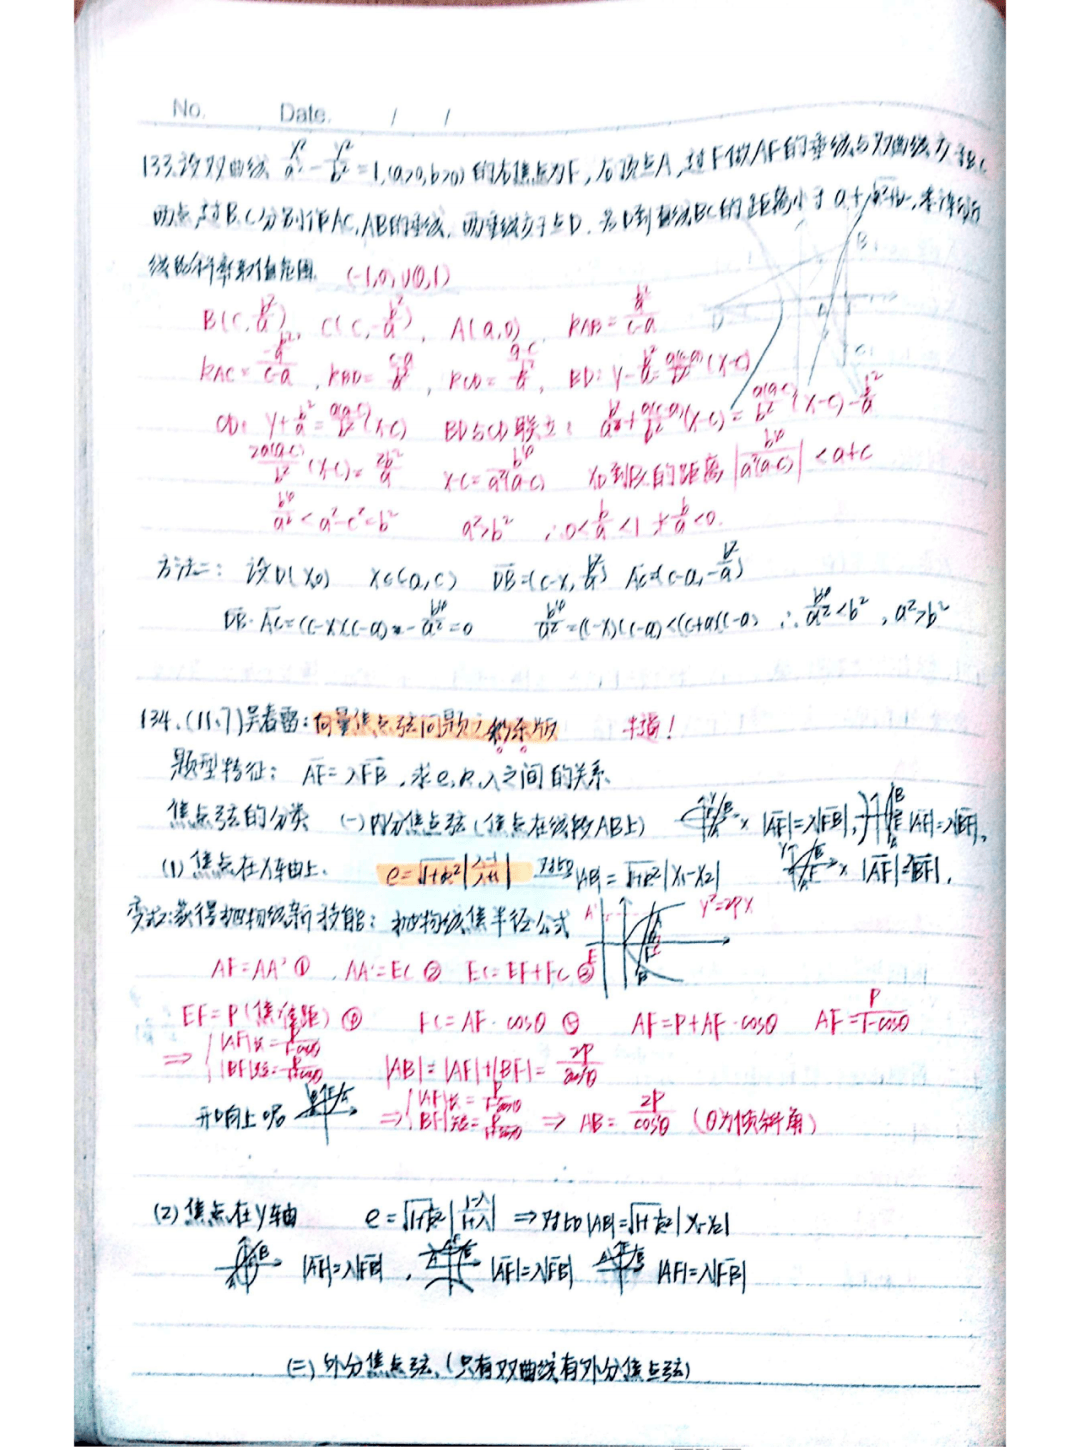 No. Date. / /
133.设双曲线 x²/a² - y²/b² = 1,(a>0,b>0) 的右焦点为F,右顶点A,过F做AF的垂线与双曲线交于B,C
两点,过B,C分别作AC,AB的垂线,两垂线交于点D.若D到直线BC的距离小于 a+√(a²+b²),求渐近
线的斜率取值范围. (-1,0)∪(0,1)
B(c, b²/a), C(c, -b²/a), A(a,0), kAB = (b²/a)/(c-a)
kAC = (-b²/a)/(c-a), kBD = (c-a)/(b²/a), kCD = (a-c)/(b²/a), BD: y - b²/a = a(c-a)/b² (x-c)
CD: y + b²/a = a(a-c)/b² (x-c) BD与CD联立: b²/a + a(c-a)/b² (x-c) = a(a-c)/b² (x-c) - b²/a
2a(a-c)/b² (x-c) = 2b²/a x-c = b⁴/a²(a-c) xD到BC的距离 |b⁴/a²(a-c)| < a+c
b⁴/a² < a²-c² = b² a²>b² ∴0< b/a <1 -b/a <0.
方法二: 设D(x,0) x∈(a,c) DB=(c-x, b²/a) AC=(c-a, -b²/a)
DB·AC=(c-x)(c-a) - b⁴/a² =0 b⁴/a² =(c-x)(c-a)<(c+a)(c-a) ∴ b⁴/a² <b² , a²>b²
134.(11.7)吴春雷:向量焦点弦问题之秒杀版 牛逼!
题型特征: AF=λFB ,求e,k,λ之间的关系
焦点弦的分类 (一)内分焦点弦(焦点在线段AB上) |AF|=λ|FB|, |AF|=λ|BF|,
(1) 焦点在X轴上. e=√(1+k²)|(λ-1)/(λ+1)| 对比 |AB|=√(1+k²)|x₁-x₂| |AF|=λ|BF|.
变式:获得抛物线新技能: 抛物线焦半径公式 y²=2px
AF=AA' ① AA'=EC ② EC=EF+FC ③
EF=P(焦准距) ④ FC=AF·cosθ ⑤ AF=P+AF·cosθ AF= P/(1-cosθ)
⇒ { |AF|长= P/(1-cosθ) |BF|短= P/(1+cosθ) |AB|=|AF|+|BF|= 2P/sin²θ
开口向上呢 ⇒ { |AF|长= P/(1-sinθ) |BF|短= P/(1+sinθ) ⇒ AB= 2P/cos²θ (θ为倾斜角)
(2) 焦点在Y轴 e=√(1+1/k²)|(1-λ)/(1+λ)| ⇒对比|AB|=√(1+1/k²)|x₁-x₂|
|AF|=λ|FB| , |AF|=λ|FB| |AF|=λ|FB|
(二) 外分焦点弦.(只有双曲线有外分焦点弦)